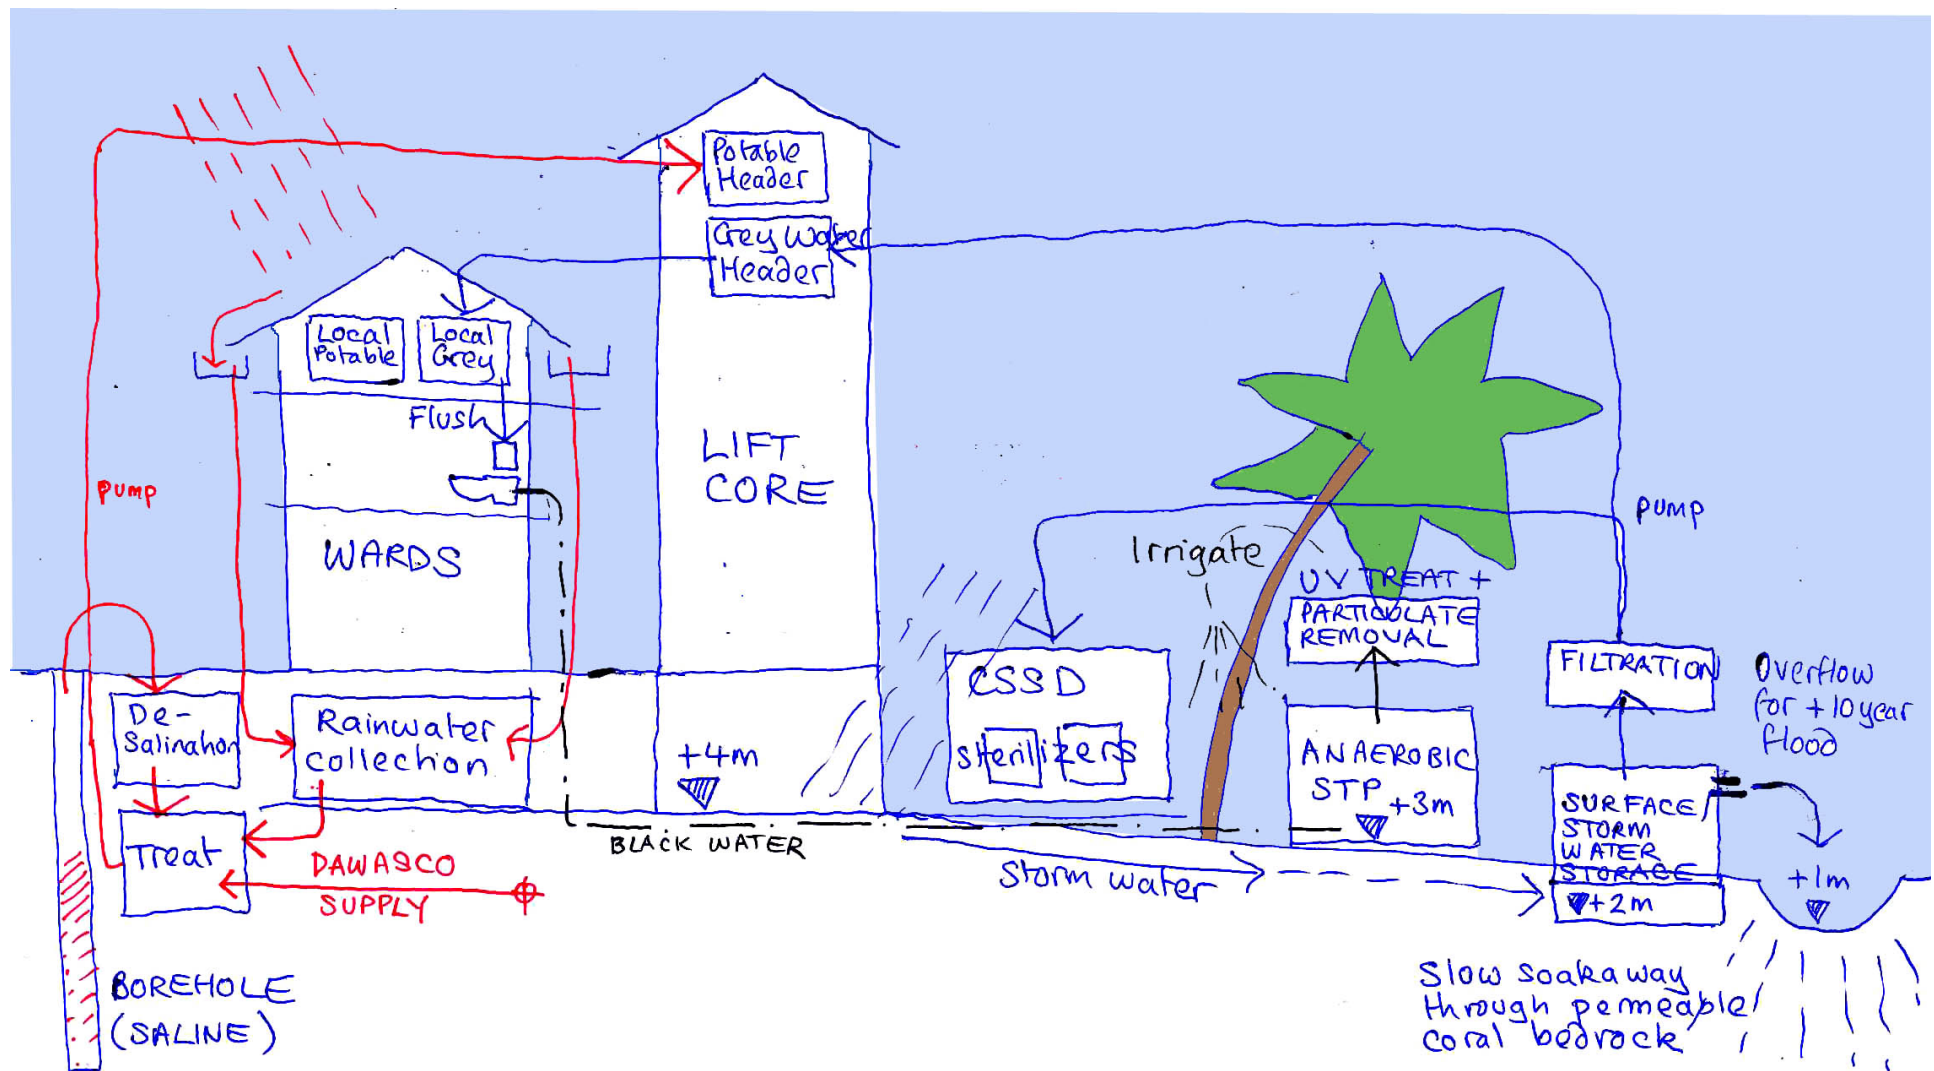 Potable
Header
Grey Water
Header
Local
Potable
Local
Grey
Flush
LIFT
CORE
pump
WARDS
pump
Irrigate
UV TREAT +
PARTICULATE
REMOVAL
FILTRATION
Overflow
for +10year
flood
CSSD
Sterilizers
De-
Salination
Rainwater
collection
+4m
ANAEROBIC
STP +3m
SURFACE/
STORM
WATER
STORAGE
+2m
+1m
Treat
DAWASCO
SUPPLY
BLACK WATER
Storm water
BOREHOLE
(SALINE)
Slow soakaway
through permeable
coral bedrock